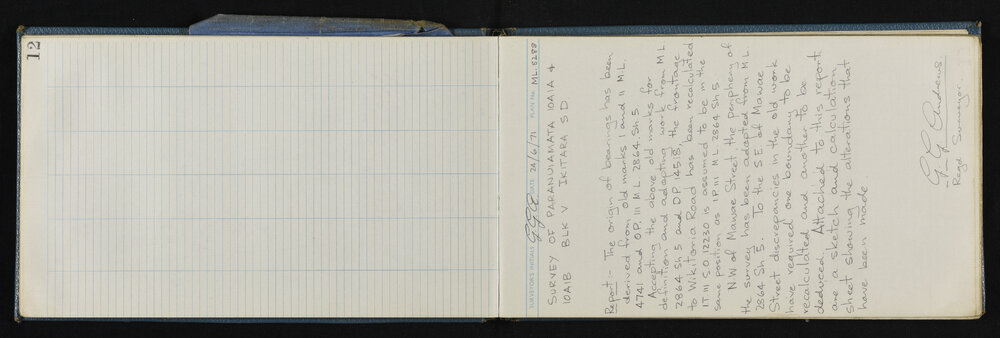 12
SURVEYOR'S INITIALS GGA DATE 24/6/71 PLAN No. ML. 5288
SURVEY OF PARANUIAMATA 10A1A &
10A1B BLK V IKITARA S D
Report:- The origin of bearings has been
derived from old marks I and II M.L.
4741 and O.P. III M L 2864 Sh 5
Accepting the above old marks for
definition and adopting work from M L
2864 Sh 5 and D P 14518, the frontage
to Wikitoria Road has been recalculated
IT III S.O. 12230 is assumed to be in the
same position as IP III M L 2864 Sh 5.
N W of Mawae Street the periphery of
the survey has been adopted from M L
2864 Sh 5. To the S E of Mawae
Street discrepancies in the old work
have required one boundary to be
recalculated and another to be
deduced. Attached to this report
are a sketch and calculation
sheet showing the alterations that
have been made
G G Andrews.
Regd Surveyor.